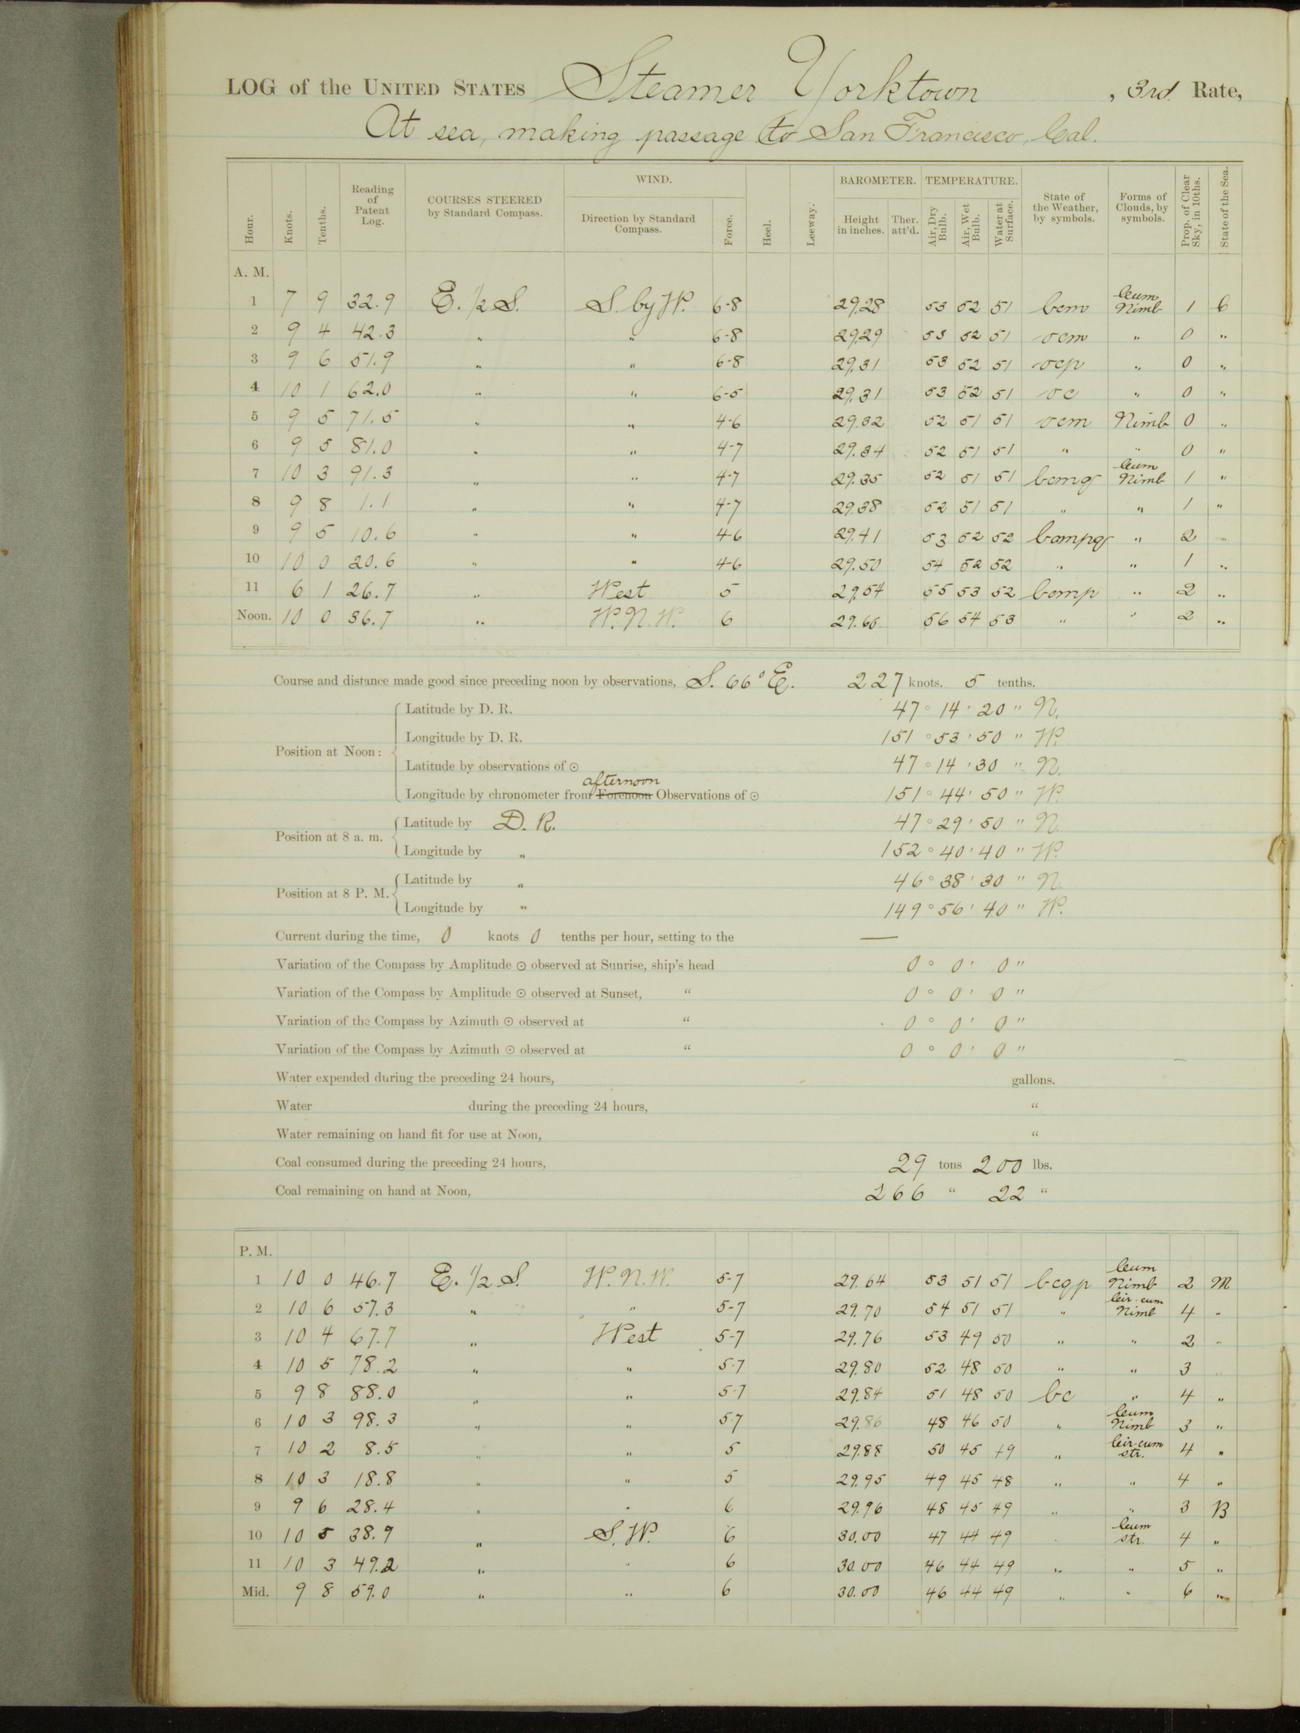 LOG of the UNITED STATES Steamer Yorktown, 3rd Rate,
At sea, making passage to San Francisco, Cal.
Hour. Knots. Tenths. Reading of Patent Log. COURSES STEERED by Standard Compass. WIND. Direction by Standard Compass. Force. Heel. Leeway. BAROMETER. Height in inches. Ther. att'd. TEMPERATURE. Air, Dry Bulb. Air, Wet Bulb. Water at Surface. State of the Weather, by symbols. Forms of Clouds, by symbols. Prop. of Clear Sky, in 10ths. State of the Sea.
A. M.
1 7 9 32.9 E. 1/2 S. S. by W. 6-8 29.28 53 52 51 bcm Cum Nimb 1 C
2 9 4 42.3 " " 6-8 29.29 53 52 51 ocm " 0 "
3 9 6 51.9 " " 6-8 29.31 53 52 51 ocp " 0 "
4 10 1 62.0 " " 6-5 29.31 53 52 51 oc " 0 "
5 9 5 71.5 " " 4-6 29.32 52 51 51 ocm Nimb 0 "
6 9 5 81.0 " " 4-7 29.34 52 51 51 " " 0 "
7 10 3 91.3 " " 4-7 29.35 52 51 51 bcmq Cum Nimb 1 "
8 9 8 1.1 " " 4-7 29.38 52 51 51 " " 1 "
9 9 5 10.6 " " 4-6 29.41 53 52 52 bcmpq " 2 "
10 10 0 20.6 " " 4-6 29.50 54 52 52 " " 1 "
11 6 1 26.7 " West 5 29.54 55 53 52 bcmp " 2 "
Noon. 10 0 36.7 " W.N.W. 6 29.65 56 54 53 " " 2 "
Course and distance made good since preceding noon by observations, S. 66° E. 227 knots. 5 tenths.
Position at Noon: Latitude by D. R. 47° 14' 20" N.
Longitude by D. R. 151° 53' 50" W.
Latitude by observations of ☉ 47° 14' 30" N.
afternoon
Longitude by chronometer from Forenoon Observations of ☉ 151° 44' 50" W.
Position at 8 a. m. Latitude by D. R. 47° 29' 50" N.
Longitude by " 152° 40' 40" W.
Position at 8 P. M. Latitude by " 46° 38' 30" N.
Longitude by " 149° 56' 40" W.
Current during the time, 0 knots 0 tenths per hour, setting to the —
Variation of the Compass by Amplitude ☉ observed at Sunrise, ship's head 0° 0' 0"
Variation of the Compass by Amplitude ☉ observed at Sunset, " 0° 0' 0"
Variation of the Compass by Azimuth ☉ observed at " 0° 0' 0"
Variation of the Compass by Azimuth ☉ observed at " 0° 0' 0"
Water expended during the preceding 24 hours, gallons.
Water during the preceding 24 hours, "
Water remaining on hand fit for use at Noon, "
Coal consumed during the preceding 24 hours, 29 tons 200 lbs.
Coal remaining on hand at Noon, 266 " 22 "
P. M.
1 10 0 46.7 E. 1/2 S. W.N.W. 5-7 29.64 53 51 51 bcqp Cum Nimb 2 M
2 10 6 57.3 " " 5-7 29.70 54 51 51 " Cir-cum Nimb 4 "
3 10 4 67.7 " West 5-7 29.76 53 49 50 " " 2 "
4 10 5 78.2 " " 5-7 29.80 52 48 50 " " 3
5 9 8 88.0 " " 5-7 29.84 51 48 50 bc " 4 "
6 10 3 98.3 " " 5-7 29.86 48 46 50 " Cum Nimb 3 "
7 10 2 8.5 " " 5 29.88 50 45 49 " Cir-cum str. 4 "
8 10 3 18.8 " " 5 29.95 49 45 48 " " 4 "
9 9 6 28.4 " " 6 29.96 48 45 49 " " 3 B
10 10 5 38.9 " S.W. 6 30.00 47 44 49 Cum str. 4 "
11 10 3 49.2 " " 6 30.00 46 44 49 " " 5 "
Mid. 9 8 59.0 " " 6 30.00 46 44 49 " " 6 "